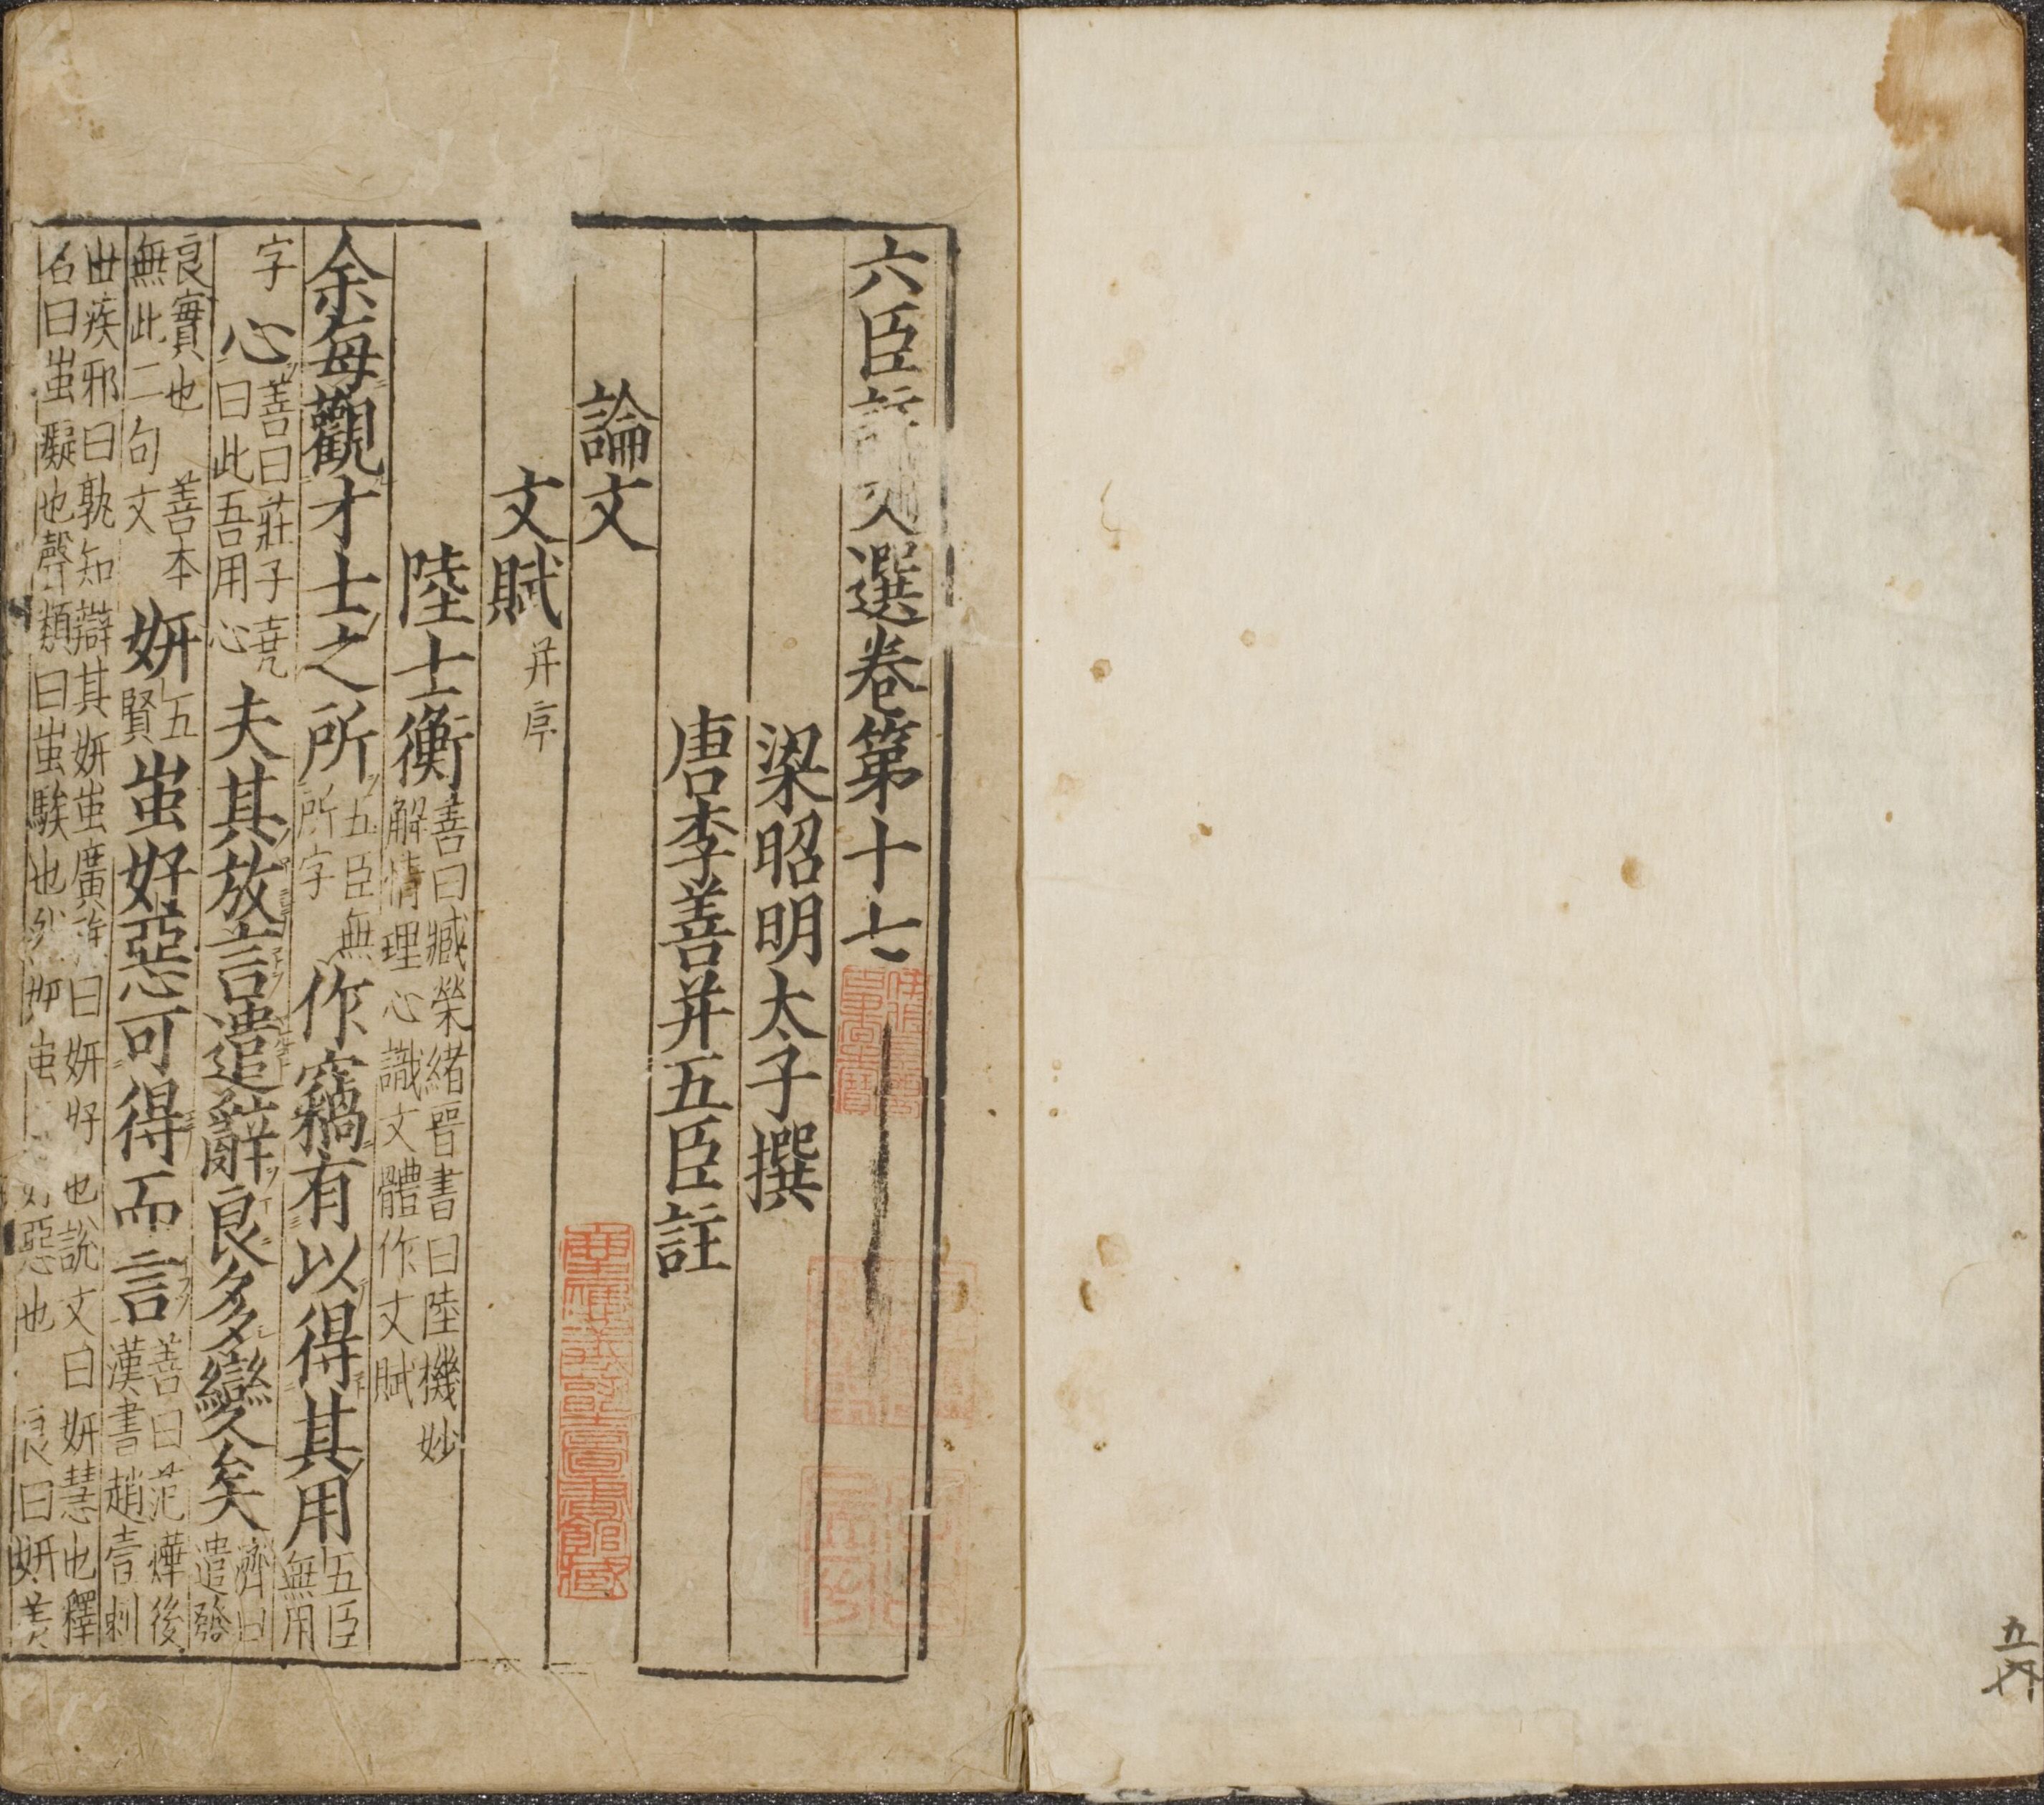 六臣註文選卷第十七
梁昭明太子撰
唐李善并五臣註
論文
文賦并序
陸士衡善曰臧榮緒晉書曰陸機妙解情理心識文體作文賦
余每觀才士之所五臣無所字作竊有以得其用五臣無用
字心善曰莊子堯曰此吾用心夫其放言遣辭良多變矣濟曰遣發
良實也善本無此二句文妍五賢蚩好惡可得而言善曰范燁後漢書趙壹刺
世疾邪曰孰知辯其妍蚩廣雅曰妍好也說文曰妍慧也釋名曰蚩癡也聲類曰蚩騃也妍蚩好惡也良曰妍美
五六